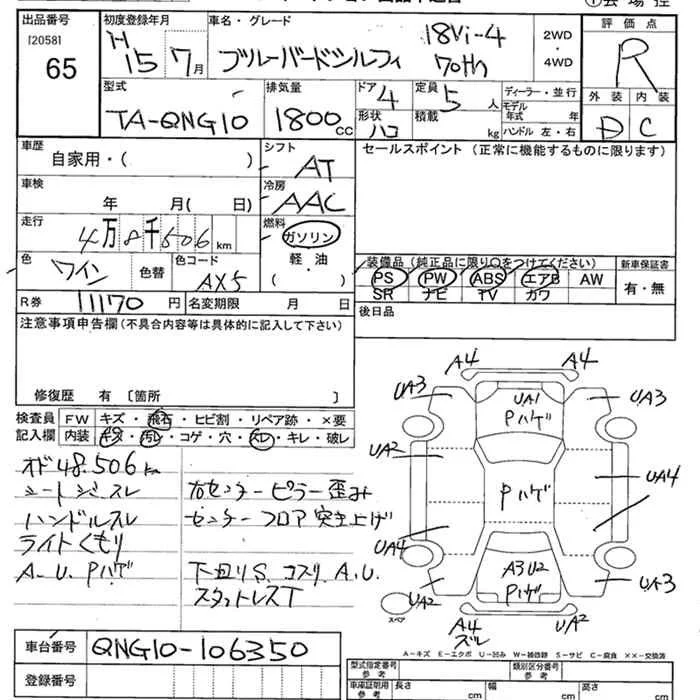 出品番号
[2058]
65
初度登録年月
H 15年 7月
車名・グレード
ブルーバードシルフィ
18Vi-4
70th
2WD
・
4WD
評価点
R
外装
内装
D
C
型式
TA-QNG10
排気量
1800cc
ドア
4
形状
ハコ
定員
5人
積載
kg
ディーラー・並行
モデル年式
年
ハンドル 左・右
車歴
自家用・( )
シフト
AT
セールスポイント (正常に機能するものに限ります)
車検
年 月( 日)
冷房
AAC
走行
4万8千506km
燃料
ガソリン
軽・油
( )
色
ワイン
色替
色コード
AX5
装備品 (純正品に限り○をつけてください)
新車保証書
PS PW ABS エアB AW
有・無
SR ナビ TV カワ
R券 11170円
名変期限 月 日
後日品
注意事項申告欄 (不具合内容等は具体的に記入して下さい)
修復歴 有 〔箇所 〕
検査員
記入欄
FW キズ・飛石・ヒビ割・リペア跡・×要
内装 キズ・汚レ・コゲ・穴・スレ・キレ・破レ
オド48.506km
シートジミスレ
右センターピラー歪み
ハンドルスレ
センターフロア突き上げ
ライトくもり
A.U.Pハゲ
下回りS.コスリA.U.
スタットレスT
A4 A4
UA3 UA1 UA3
Pハゲ
UA2
Pハゲ
UA4
UA4
A3U2
Pハゲ
UA2 UA3
スペア
A4 UA2
ズレ
A-キズ E-エクボ U-凹み W-補修跡 S-サビ C-腐食 ××-交換済
車台番号
QNG10-106350
登録番号
型式指定番号
参考
類別区分番号
参考
車庫証明用
参考
長さ cm
幅 cm
高さ cm